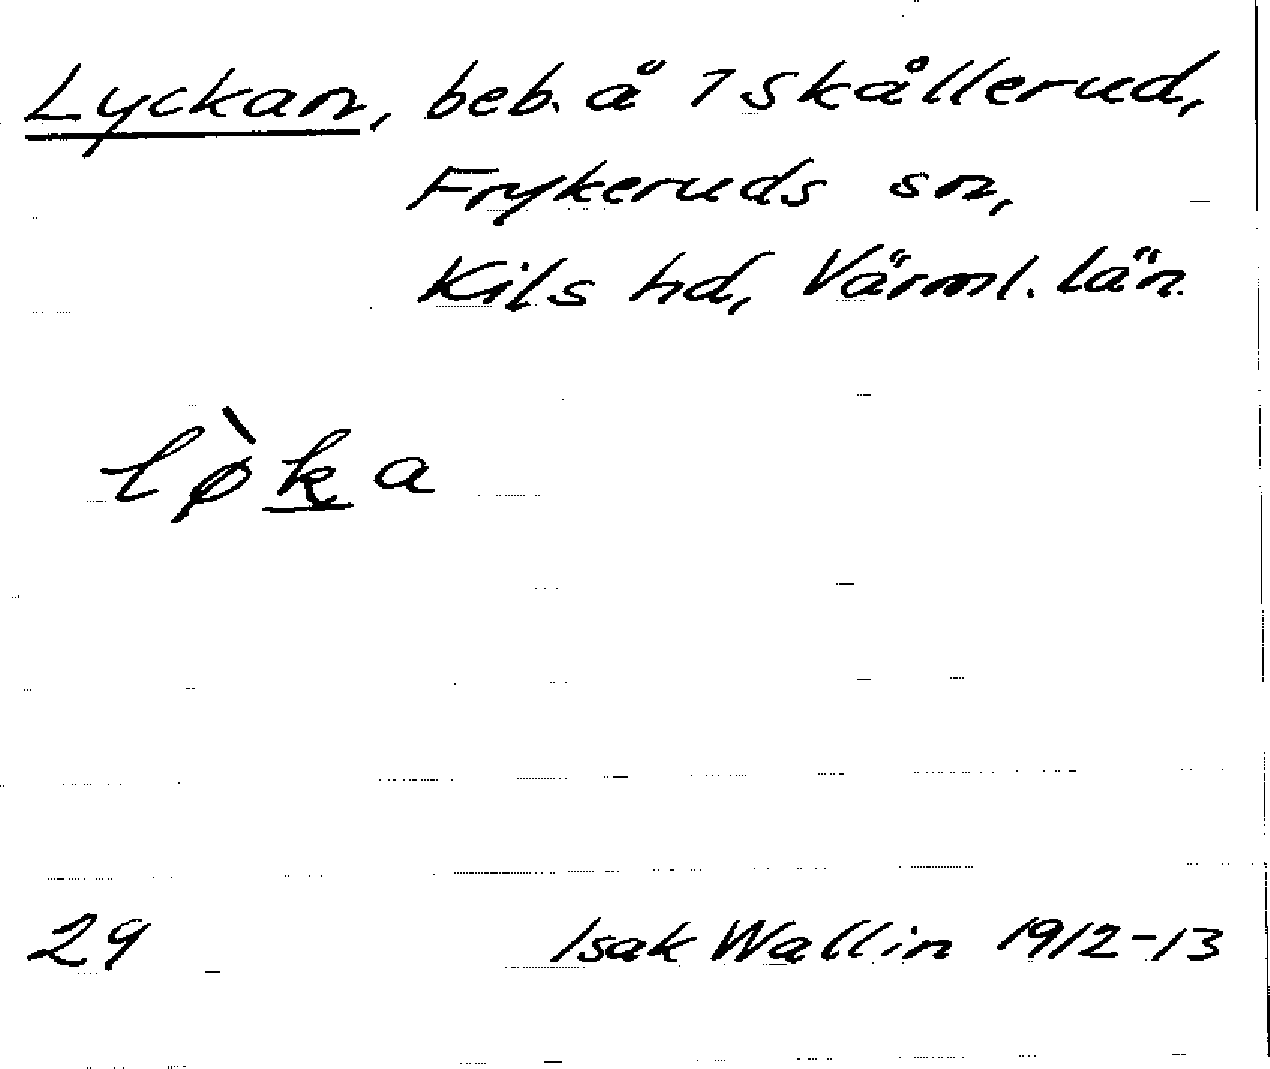 Lyckan, beb. å 7 Skållerud,
Frykeruds sn,
Kils hd, Värml. län.
lø̀k̲a
29 Isak Wallin 1912-13